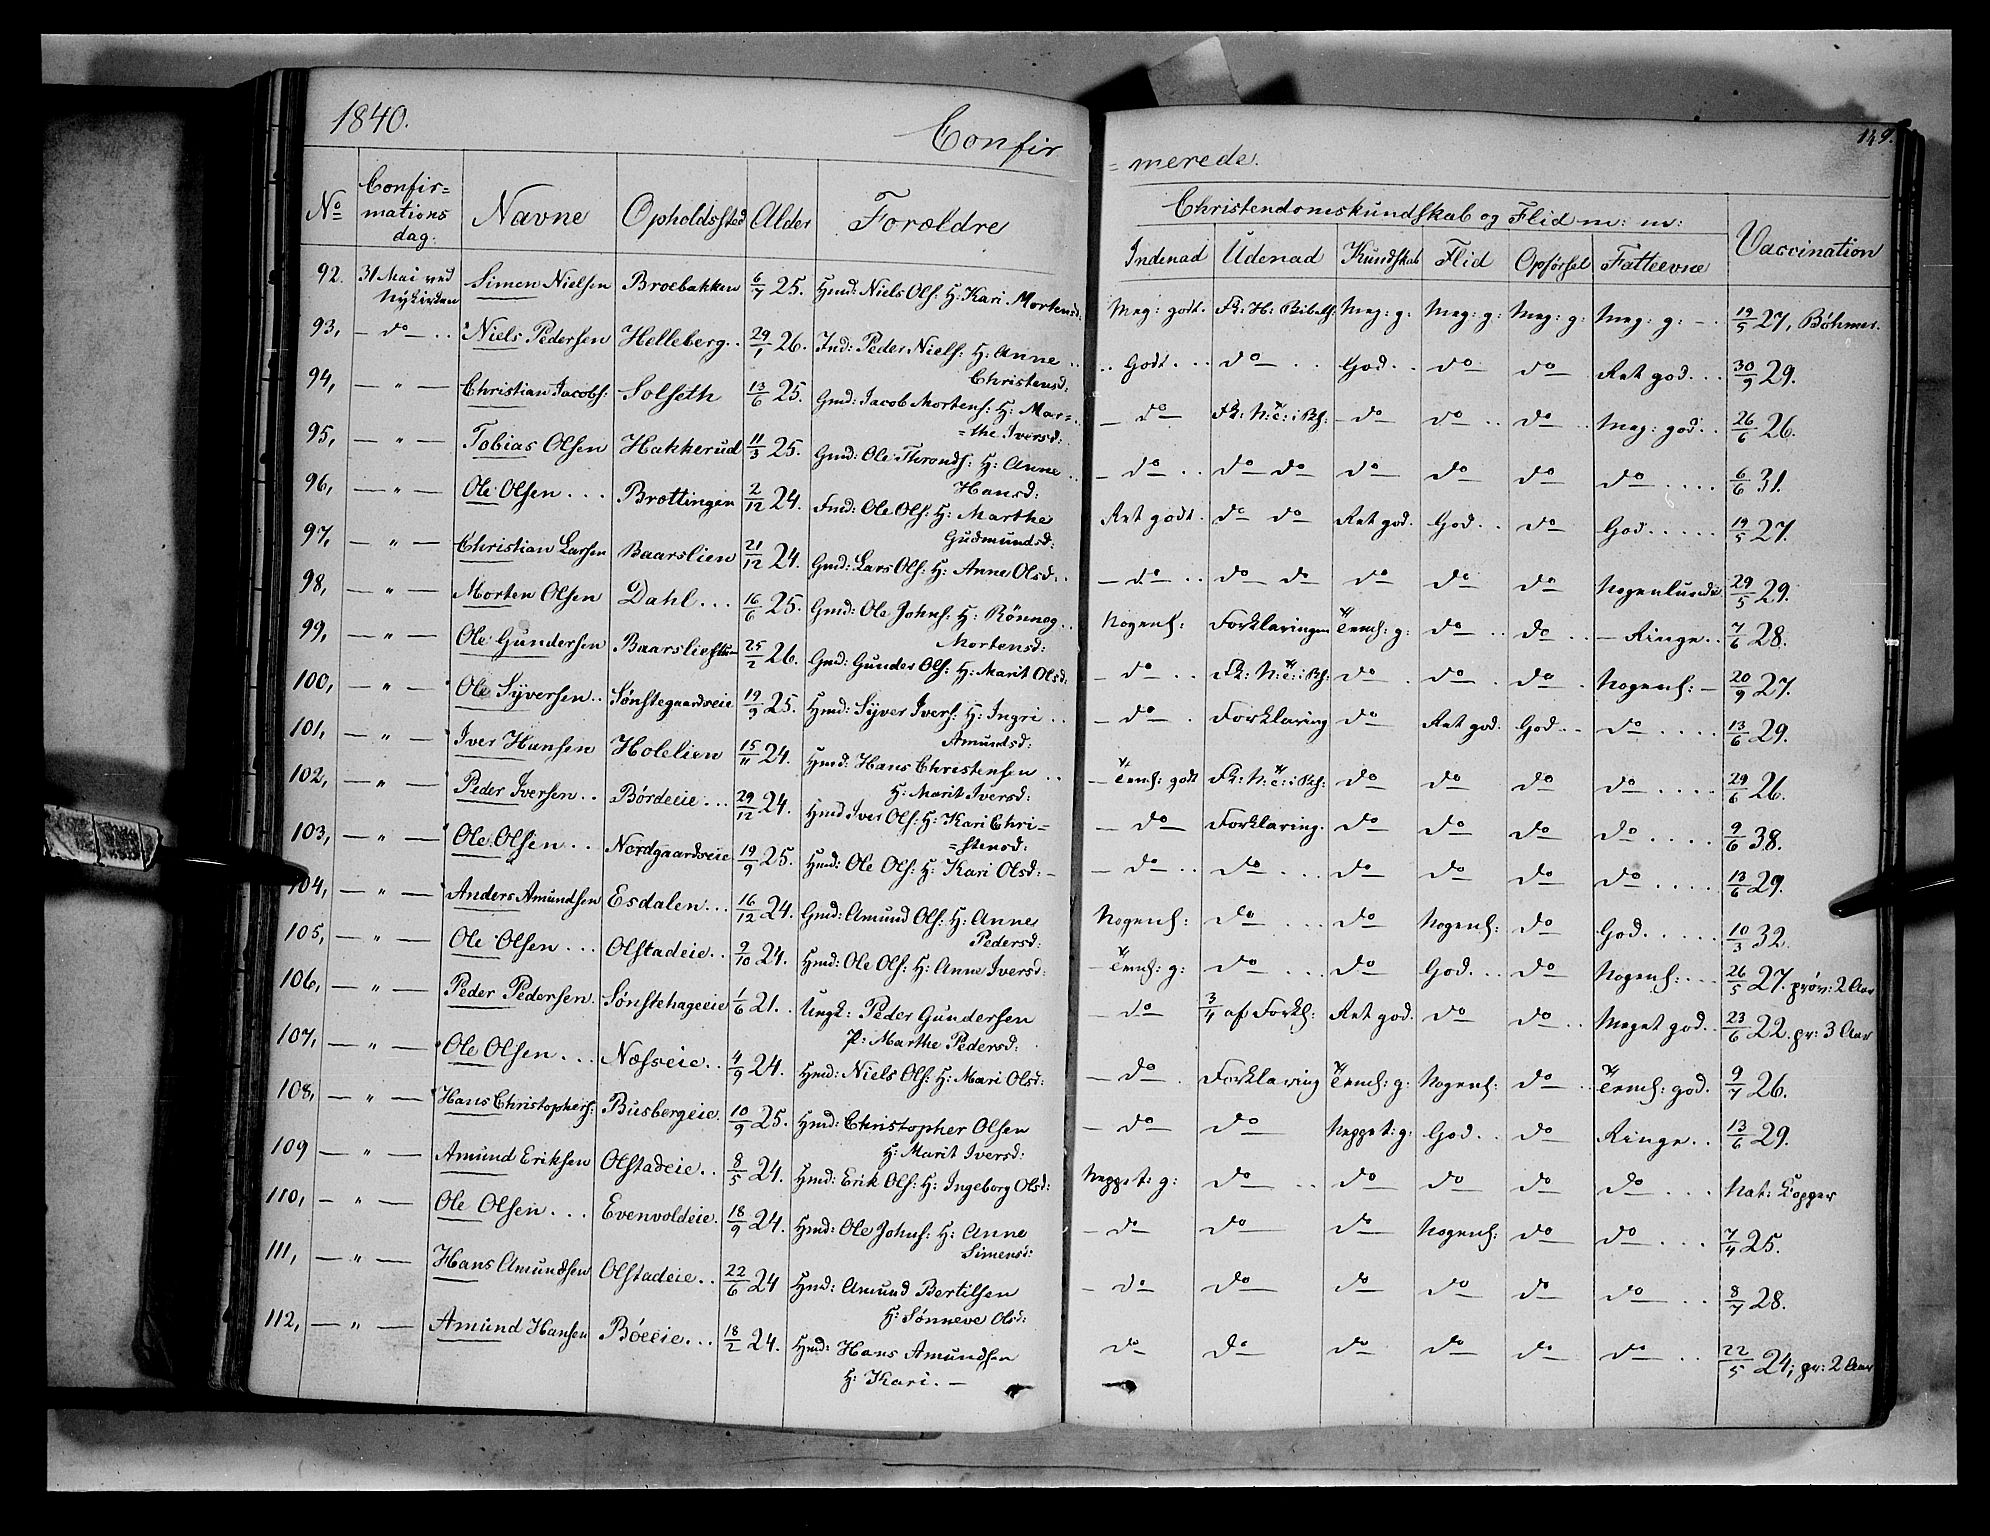 1840.
Confir
= merede.
149.
No Confir= mations dag. Navne Opholdssted Alder Forældre
Christendomskundskab og Flid m: m:
Indenad Udenad Kundskab Flid Opførsel Fatteevne Vaccination
92. 31 Mai ved Nykirken Simen Nielsen Broebakken 6/7 25. Hmd: Niels Ols: H: Kari Mortensd: Meg: godt. Fk: H: Bibelh: Meg: g: Meg: g: Meg: g: Meg: g: – 19/5 27, Böhmer.
93, — do — Niels Pedersen Helleberg 29/1 26. Ind: Peder Niels: H: Anne Christensd: Godt do God do do Ret god 30/9 29.
94, — " — Christian Jacobs: Solseth 13/6 25. Gmd: Jacob Mortens: H: Mar= =the Iversd: do do do do Meg: god 26/6 26.
95, — " — Tobias Olsen Hakkerud 11/3 25. Gmd: Ole Thronds: H: Anne Hansd: do do do do do do do 6/6 31.
96, — " — Ole Olsen Brottingen 2/12 24. Fmd: Ole Ols: H: Marthe Gudmundsd: Ret godt. do do Ret god. God do God 19/5 27.
97, — " — Christian Larsen Baarslien 21/12 24. Gmd: Lars Ols: H: Anne Olsd: do do do do do do Nogenlunde 29/5 29.
98, — " — Morten Olsen Dahl 16/6 25. Gmd: Ole Johns: H: Rönnog Mortensd: Nogenl: Forklaringen Teml: g: do do Ringe 7/6 28.
99, — " — Ole Gundersen 25/2 26. Gmd: Gunder Ols: H: Marit Olsd: do do do do Nogenl: 20/9 27.
100, — " — Ole Syversen Sønstegaardseie 19/9 25. Hmd: Syver Ivers: H: Ingri Amundsd: do Forklaring do Ret god. God do 13/6 29.
101, — " — Iver Hansen Holelien 15/11 24. Hmd: Hans Christensen H: Marit Iversd: Teml: godt do do do do 29/6 26.
102, — " — Peder Iversen Bördeeie 29/12 24. Hmd Iver Ols: H: Kari Chri= =stensd: do Forklaring. do do do do 9/6 38.
103, — " — Ole Olsen Nordgaardseie 19/9 25. Hmd: Ole Ols: H: Kari Olsd: do do do do do do 13/6 29.
104, — " — Anders Amundsen Esdalen 16/12 24. Gmd: Amund Ols: H: Anne Pedersd: Nogenl: do do Nogenl: do God 10/3 32.
105, — " — Ole Olsen Olstadeie 9/10 24. Hmd: Ole Ols: H: Anne Iversd: Teml: g: do do God do Nogenl: 26/5 27. prøv: 2 Aar
106, — " — Peder Pedersen Sønstehageeie 1/6 21. Ungk: Peder Gundersen P: Marthe Pedersd: do 3/4 af Forkl: Ret god. do do Meget god 23/6 22. pr: 3 Aar
107, — " — Ole Olsen Næsseie 4/9 24. Hmd: Niels Ols: H: Mari Olsd: do Forklaring Teml: g: Nogenl: do Teml: god. 9/7 26.
108, — " — Hans Christophers: Busbergeie 10/9 25. Hmd: Christopher Olsen H: Marit Iversd: do do Neppet: g: God do Ringe 13/6 29.
109 — " — Amund Eriksen Olstadeie 8/5 24. Hmd: Erik Ols: H: Ingeborg Olsd: Neppet: g: do do do do do Nat: Kopper
110, — " — Ole Olsen Evenvoldeie. 18/9 24. Hmd: Ole Johns: H: Anne Simensd: do do do Nogenl: do do 7/4 25.
111, — " — Hans Amundsen Olstadeie 22/6 24 Hmd: Amund Bertilsen H: Sønneve Olsd: do do do do do do 8/7 28.
112, — " — Amund Hansen Böeeie 18/2 24. Hmd: Hans Amundsen H: Kari. — do do do do do do 22/5 24; pr: 2 Aar